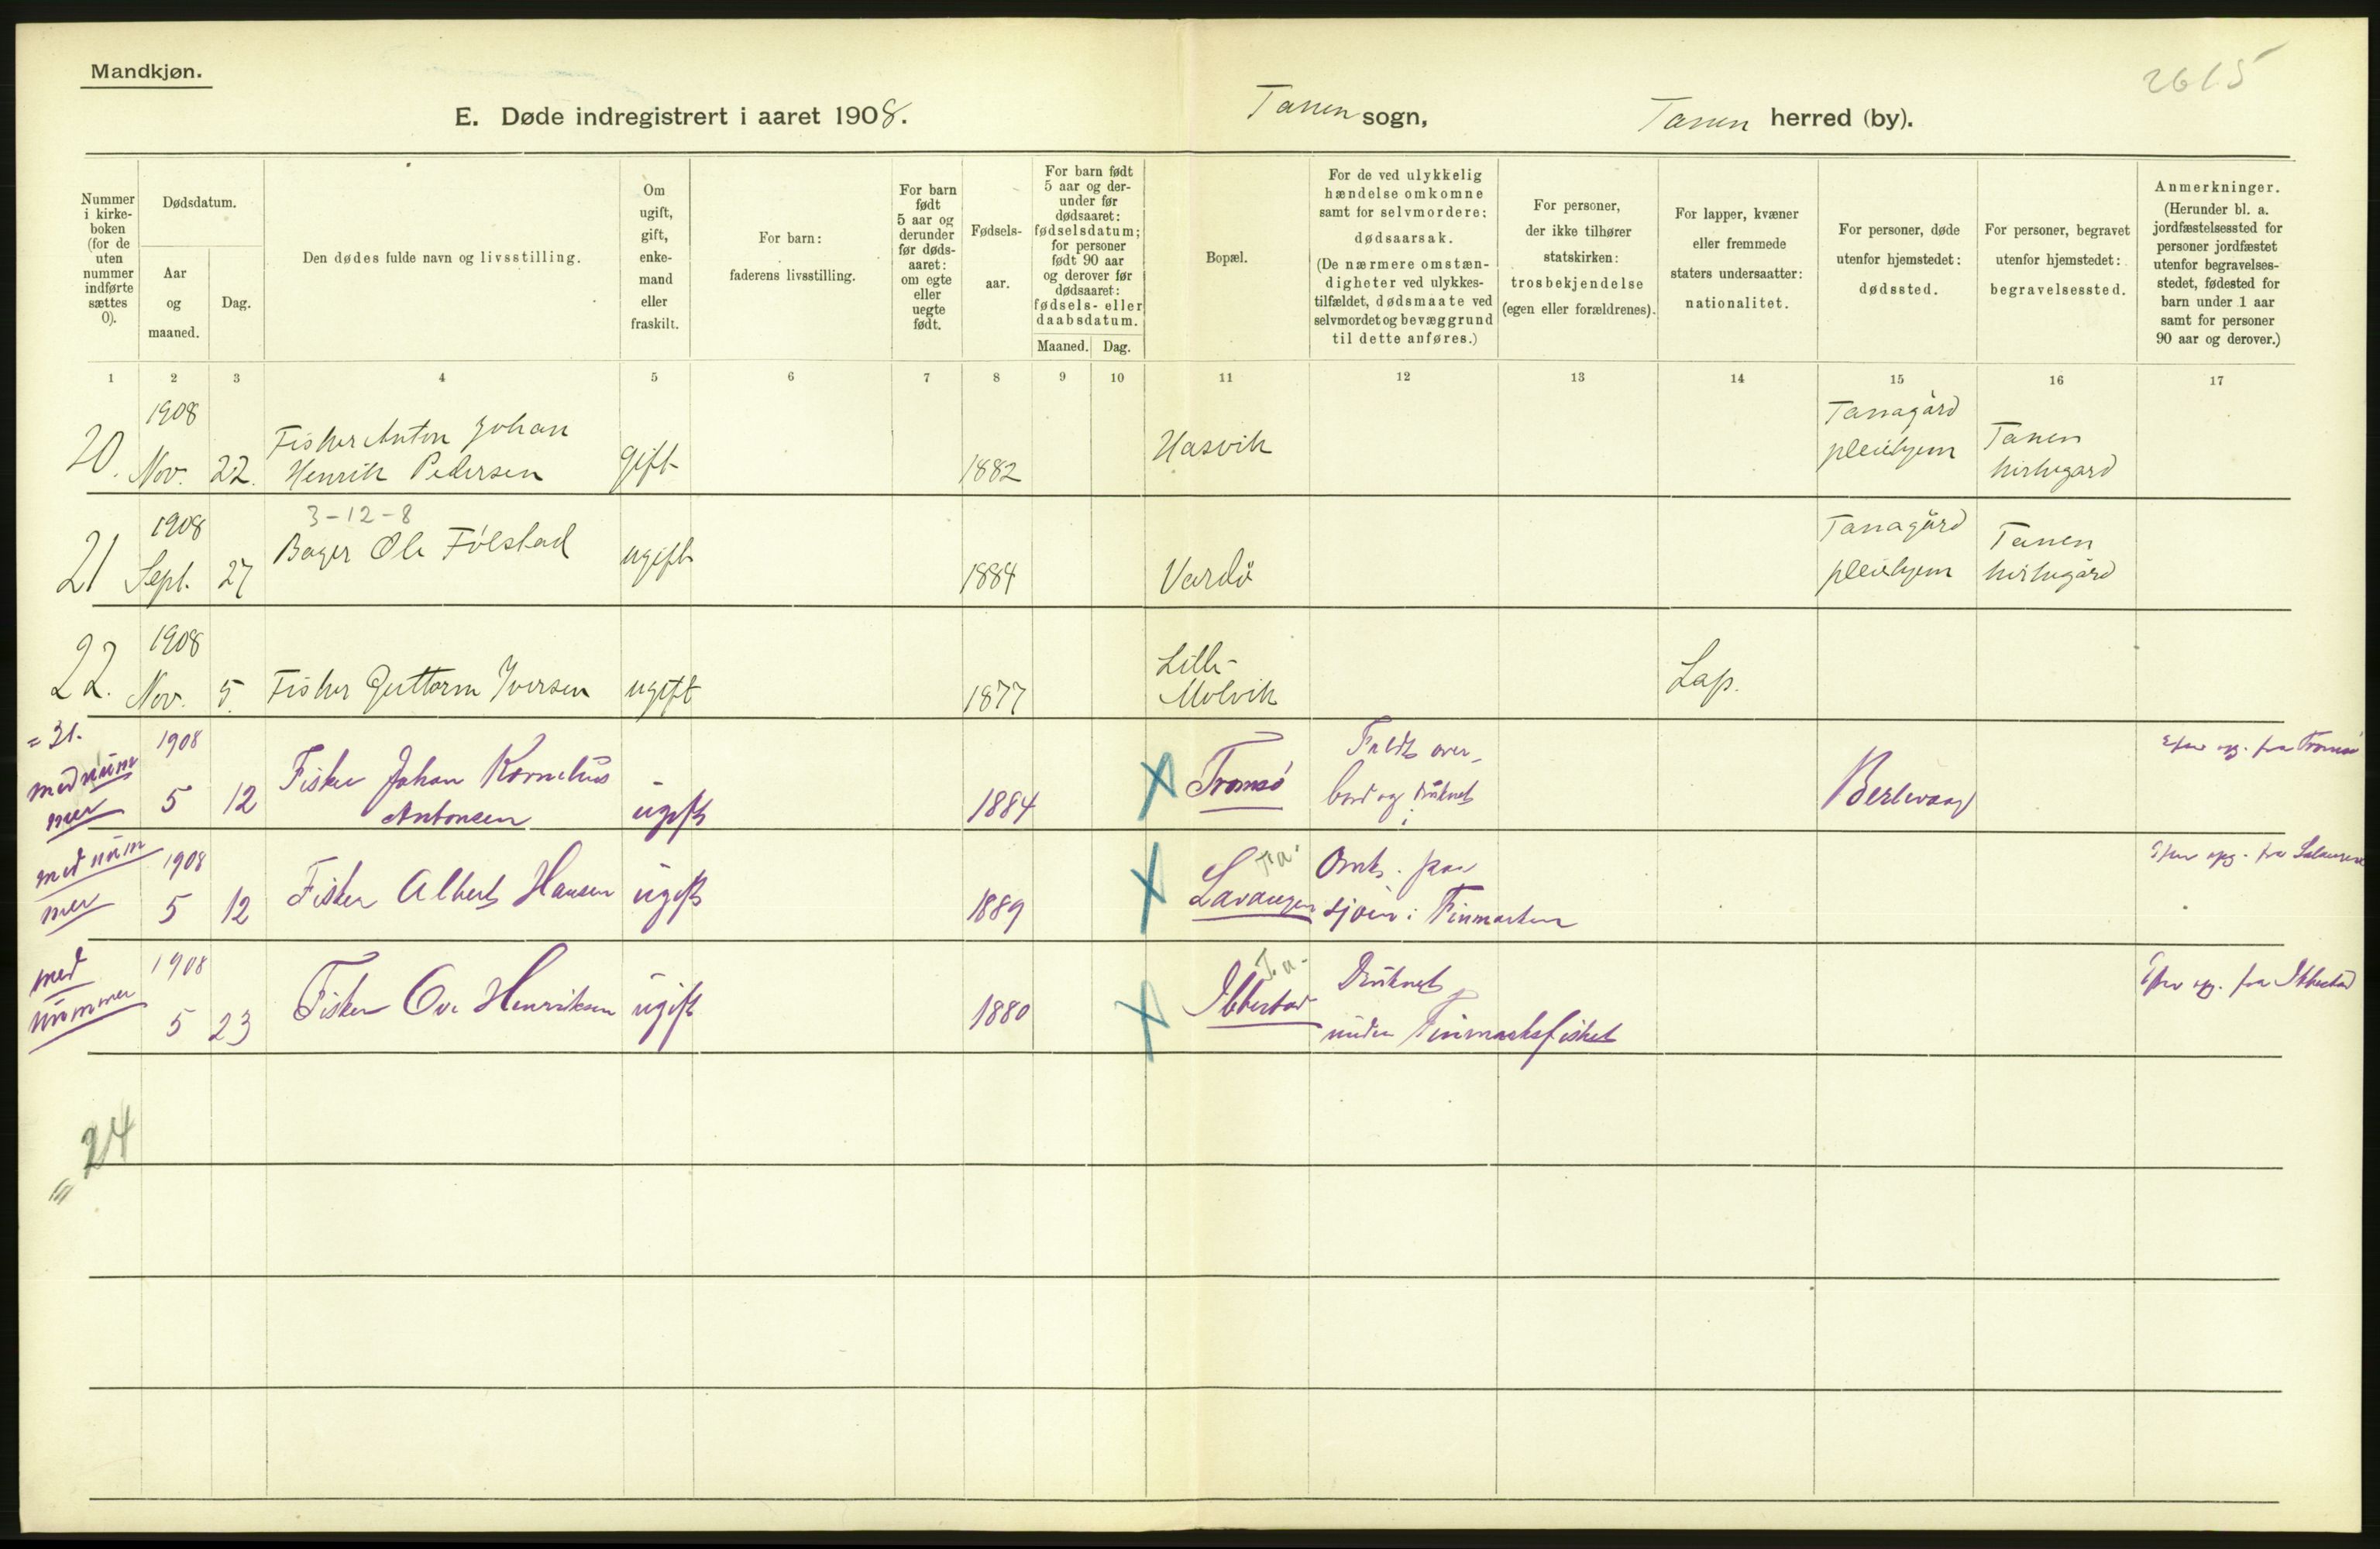 Mandkjøn.
2615
E. Døde indregistrert i aaret 1908.
Tanen sogn,
Tanen herred (by).
Nummer i kirke-boken (for de uten nummer indførte sættes 0).
Dødsdatum.
Aar og maaned.
Dag.
Den dødes fulde navn og livsstilling.
Om ugift, gift, enke-mand eller fraskilt.
For barn: faderens livsstilling.
For barn født 5 aar og derunder før døds-aaret: om egte eller uegte født.
Fødsels-aar.
For barn født 5 aar og der-under før dødsaaret: fødselsdatum; for personer født 90 aar og derover før dødsaaret: fødsels- eller daabsdatum.
Maaned.
Dag.
Bopæl.
For de ved ulykkelig hændelse omkomne samt for selvmordere: dødsaarsak. (De nærmere omstæn-digheter ved ulykkes-tilfældet, dødsmaate ved selvmordet og bevæggrund til dette anføres.)
For personer, der ikke tilhører statskirken: trosbekjendelse (egen eller forældrenes).
For lapper, kvæner eller fremmede staters undersaatter: nationalitet.
For personer, døde utenfor hjemstedet: dødssted.
For personer, begravet utenfor hjemstedet: begravelsessted.
Anmerkninger. (Herunder bl. a. jordfæstelsessted for personer jordfæstet utenfor begravelses-stedet, fødested for barn under 1 aar samt for personer 90 aar og derover.)
1 2 3 4 5 6 7 8 9 10 11 12 13 14 15 16 17
1908 Fisker Anton Johan Tanagård
20. Nov. 22. Henrik Pedersen gift 1882 Hasvik pleiehjem Tanen kirkegård
3-12-8
1908 Bager Ole Fölstad Tanagård Tanen
21 Sept. 27 ugift 1884 Vardö pleiehjem kirkegård
1908 Lille-
22. Nov. 5. Fisker Guttorm Iversen ugift 1877 Molvik Lap.
= 21. 1908 Fisker Johan Kornelius Faldt over- Efter opg. fra Tromsø
med num 5 12 Tromsö bord og druknet Berlevaag
mer Antonsen ugift 1884
med num 1908 Fa. Omk. paa Efter opg. fra
mer 5 12 Fisker Albert Hansen ugift 1889 Lavangen sjøen i Finmarken
med 1908 Fa. Druknet Efter opg. fra Ibbestad
nummer 5 23 Fisker Ove Henriksen ugift 1880 Ibbestad under Finmarksfisket
24